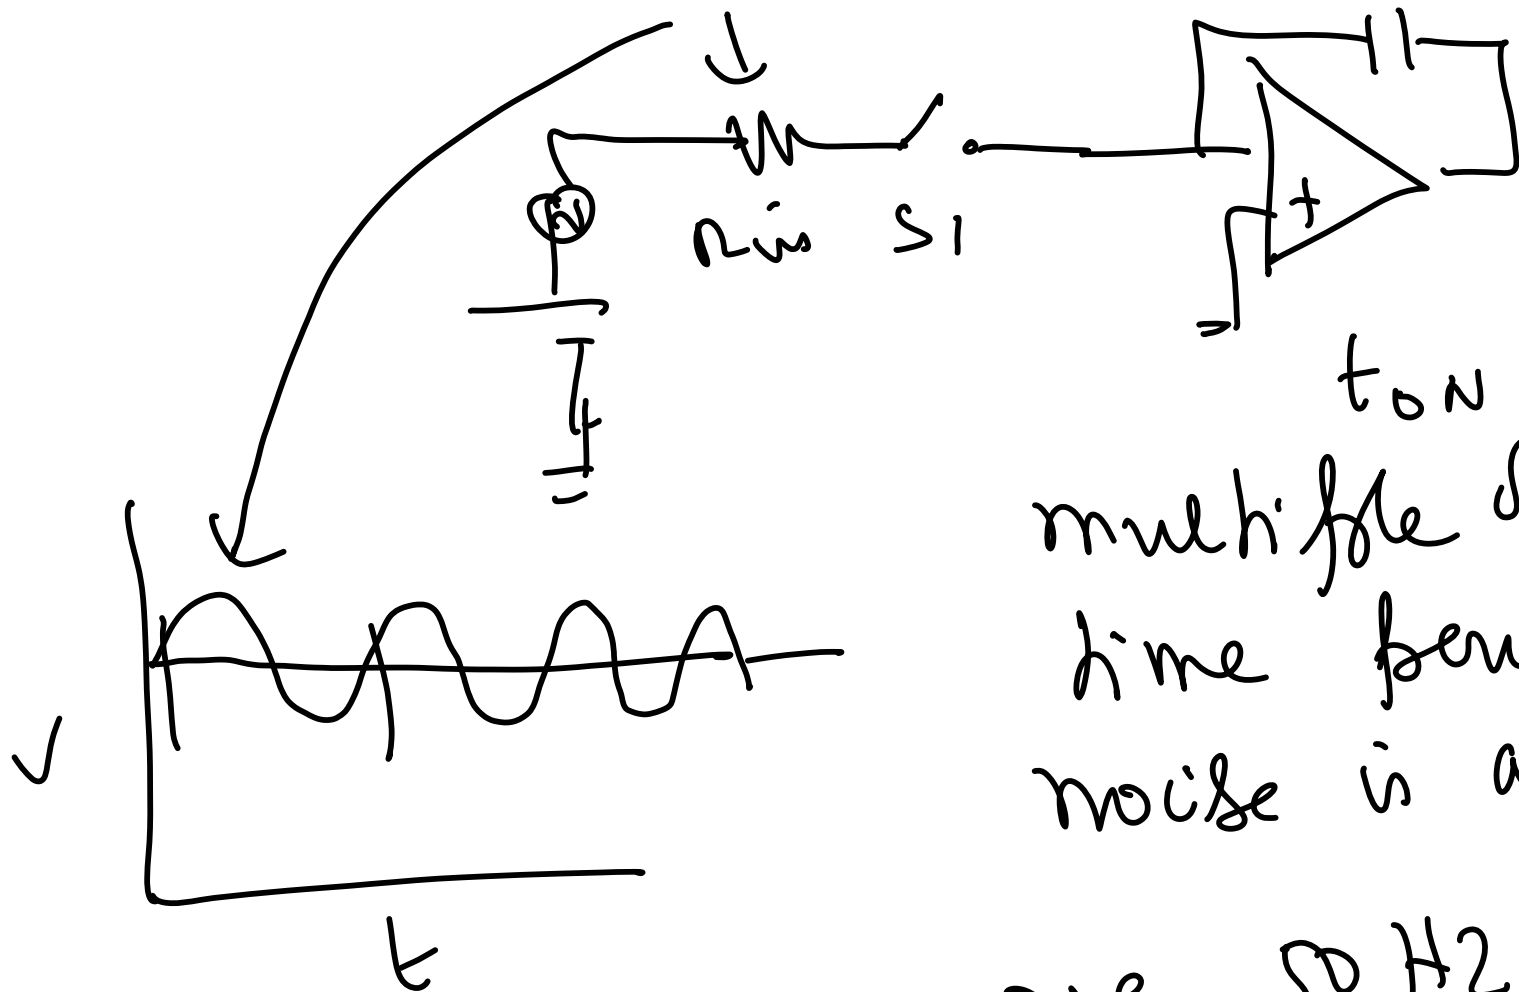 Rin S1
+
tON
multiple
time
noise is a
V
t
50 Hz